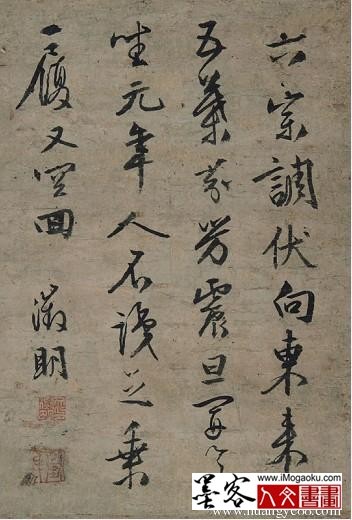 六宗調伏向東来
五葉芬芳震旦開久
坐元年人不識乘
一履又空回
徵明
www.iMogaoku.com
墨客
人文書畫